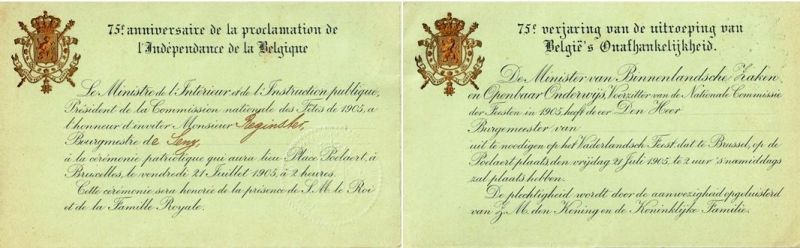 75e anniversaire de la proclamation de
l'Indépendance de la Belgique
Le Ministre de l'Intérieur et de l'Instruction publique,
Président de la Commission nationale des Fêtes de 1905, a
l'honneur d'inviter Monsieur Reginster,
Bourgmestre de Seny,
à la cérémonie patriotique qui aura lieu Place Poelaert, à
Bruxelles, le vendredi 21 Juillet 1905, à 2 heures.
Cette cérémonie sera honorée de la présence de S. M. le Roi
et de la Famille Royale.
75e verjaring van de uitroeping van
België's Onafhankelijkheid.
De Minister van Binnenlandsche Zaken
en Openbaar Onderwijs, Voorzitter van de Nationale Commissie
der Feesten in 1905, heeft de eer Den Heer
Burgemeester van
uit te noodigen op het Vaderlandsch Feest dat te Brussel, op de
Poelaert plaats den vrijdag 21 Juli 1905, te 2 uur 's namiddags
zal plaats hebben.
De plechtigheid wordt door de aanwezigheid opgeluisterd
van Z. M. den Koning en de Koninklijke Familie.